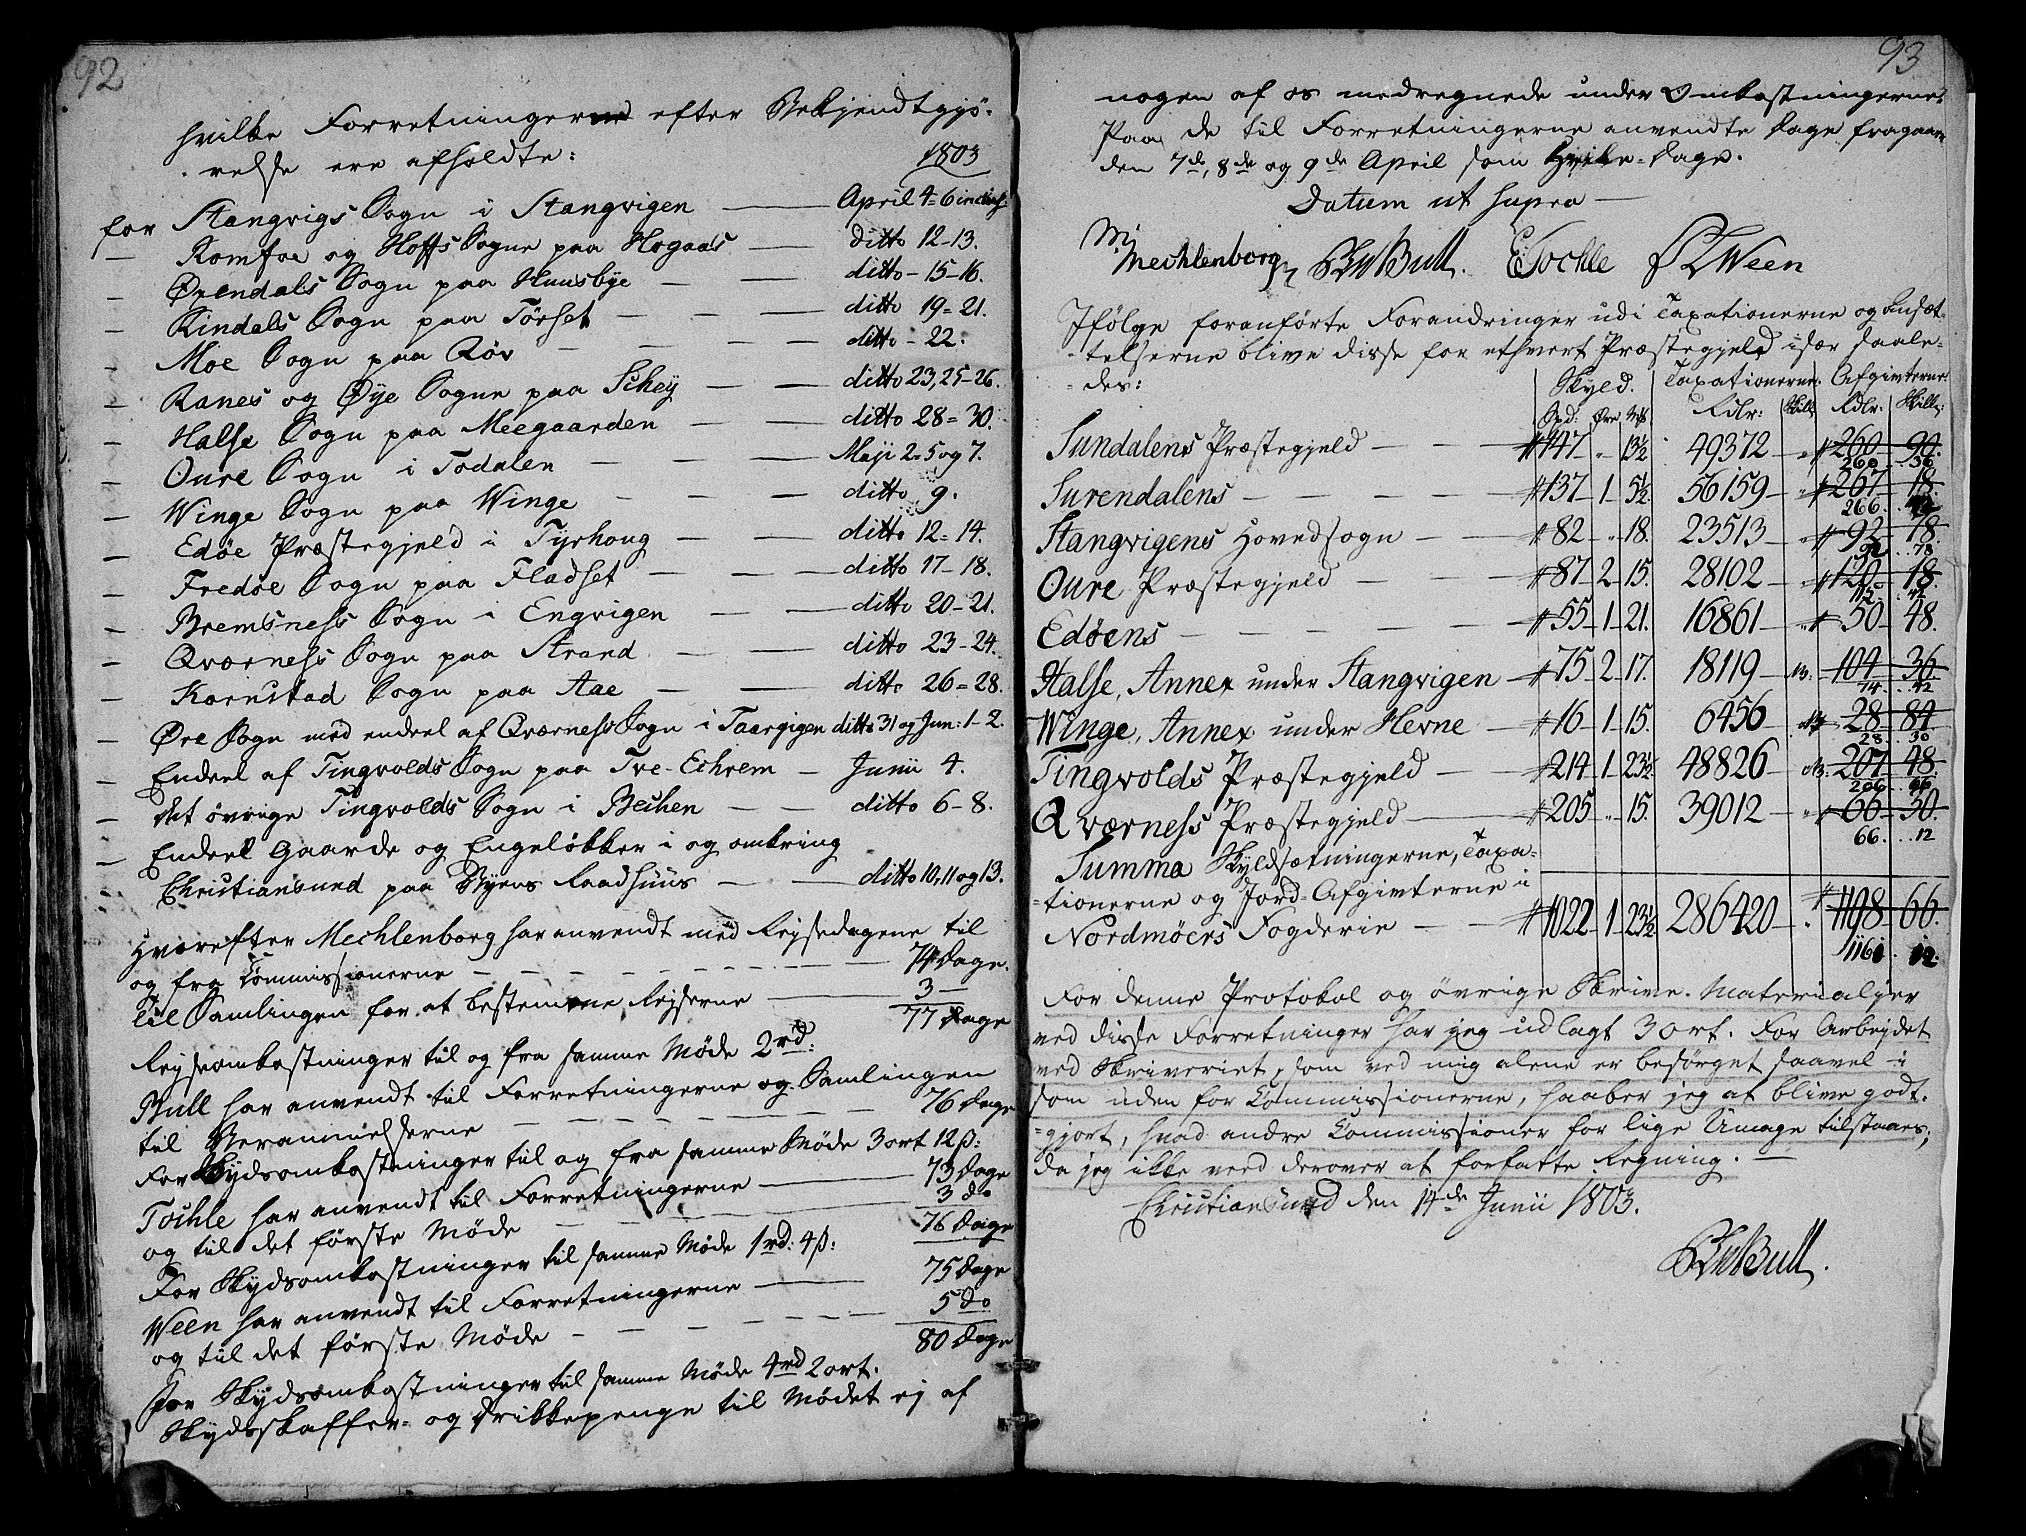 92
hvilke Forretninger efter Bekjendtgjö-
relse ere afholdte:
1803
for Stangvigs Sogn i Stangvigen — April 4=6 inclus:
— Romfoe og Hoffs Sogne paa Hogaas — ditto 12-13.
— Øxendals Sogn paa Huusbye — ditto - 15-16.
— Rindals Sogn paa Törset — ditto 19=21.
— Moe Sogn paa Röv — ditto - 22.
— Ranes og Øye Sogne paa Schey — ditto 23, 25-26.
— Halse Sogn paa Meegaarden — ditto 28=30.
— Oure Sogn i Todalen — Maji 2=5 og 7.
— Winge Sogn paa Winge — ditto 9.
— Edöe Præstegjeld i Tyrhoug — ditto 12=14.
— Fredöe Sogn paa Fladset — ditto 17-18.
— Bremsness Sogn i Engvigen — ditto 20-21.
— Qværness Sogn paa Strand — ditto 23-24.
— Kornstad Sogn paa Aae — ditto 26=28.
— Øre Sogn med endeel af Qværness Sogn i Taarvigen ditto 31 og Jun: 1-2.
— Endeel af Tingvolds Sogn paa Tve-Echrem — Junii 4.
— det övrige Tingvolds Sogn i Bechen — ditto 6-8.
— Endeel Gaarde og Engelökker i og omkring
Christiansund paa Byens Raadhuus — ditto 10, 11 og 13.
Hvorefter Mechlenborg har anvendt med Rejsedagene til
og fra Commissionerne — 74 Dage.
til Samlingen for at bestemme Rejserne — 3 —
77 Dage
Rejseomkostninger til og fra samme Möde 2rd:
Bull har anvendt til Forretningerne og Samlingen
til Berammelserne — 76 Dage
For Skydsomkostninger til og fra samme Möde 3 ort 12ß:
Tochle har anvendt til Forretningerne — 73 Dage
og til det förste Möde — 3 do
76 Dage
For Skydsomkostninger til samme Möde 1rd: 4ß:
Ween har anvendt til Forretningerne — 75 Dage
og til det förste Möde — 5 do
80 Dage
for Skydsomkostninger til samme Möde 4rd 2 ort.
Skydsskaffer- og Drikkepenge til Mödet ej af
93
nogen af os medregnede under Omkostningerne.
Paa de til Forretningerne anvendte Dage fragaaer
den 7de, 8de og 9de April som Hvile-Dage.
Datum ut supra —
Mechlenborg Bull. E Tochle Ween
Ifölge foranförte Forandringer udi Taxationerne og Ansæt-
telserne blive disse for ethvert Præstegjeld især saale-
des:
Skyld. Taxationerne. Afgivterne.
Spd: Øre Mk. Rdlr: Skill: Rdlr: Skill:
Sundalens Præstegjeld — 147 - " - 13½ 49372 — " 260 - 90.
260 .. 36
Surendalens — 137 - 1 - 5½. 56159 — " 267 - 18.
266 ..
Stangvigens Hovedsogn — 82 - " - 18. 23513 — " 92 - 78.
92 .. 78
Oure Præstegjeld — 87 - 2 - 15. 28102 — " 120 - 18.
112 .. 42
Edöens — 55 - 1 - 21. 16861 — " 50 - 48.
Halse, Annex under Stangvigen — 75 - 2 - 17. 18119 — 104 - 36.
74 .. 42
Winge, Annex under Hevne — 16 - 1 - 15. 6456 — 28 - 84.
28 .. 30
Tingvolds Præstegjeld — 214 - 1 - 23½. 48826 — 207 - 48.
206 .. 66
Qværness Præstegjeld — 205 - " - 15. 39012 — " 66 - 30.
66 .. 12
Summa Skyldsætningerne, Taxa-
tionerne og Jord-Afgivterne i
Nordmöers Fogderie — 1022 - 1 - 23½ 286420 — 1198 - 66.
1161 . 12.
For denne Protokol og övrige Skrive-Materialier
ved disse Forretninger har jeg udlagt 3 ort. For Arbejdet
ved Skriveriet, som ved mig alene er besörget saavel i
som uden for Commissionerne, haaber jeg at blive godt-
gjort, hvad andre Commissioner for lige Umage tilstaaes;
da jeg ikke veed derover at forfatte Regning. —
Christiansund den 14de Junii 1803.
Bull.